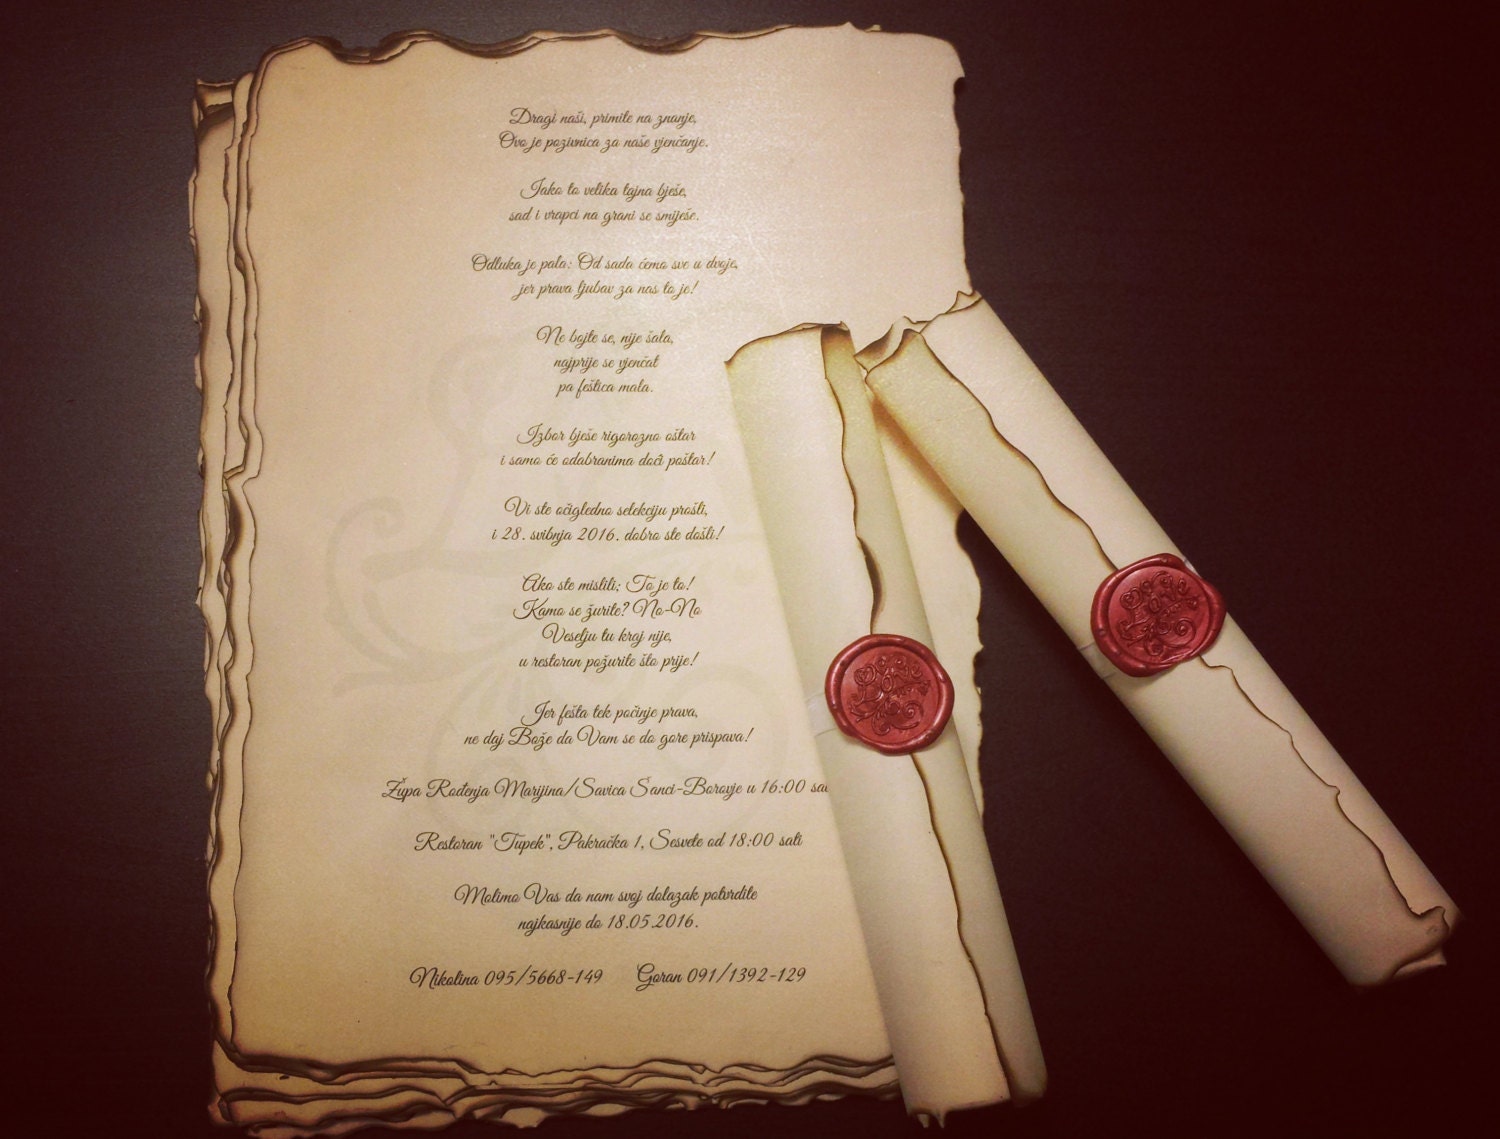 Dragi naši, primite na znanje,
Ovo je pozivnica za naše vjenčanje.
Iako to velika tajna bješe,
sad i vrapci na grani se smiješe.
Odluka je pala: Od sada ćemo sve u dvoje,
jer prava ljubav za nas to je!
Ne bojte se, nije šala,
najprije se vjenčat
pa feštica mala.
Izbor bješe rigorozno oštar
i samo će odabranima doći poštar!
Vi ste očigledno selekciju prošli,
i 28. svibnja 2016. dobro ste došli!
Ako ste mislili; To je to!
Kamo se žurite? No-No
Veselju tu kraj nije,
u restoran požurite što prije!
Jer fešta tek počinje prava,
ne daj Bože da Vam se do gore prispava!
Župa Rođenja Marijina/Savica Šanci-Borovje u 16:00
Restoran "Tupek", Pakračka 1, Sesvete od 18:00 sati
Molimo Vas da nam svoj dolazak potvrdite
najkasnije do 18.05.2016.
Nikolina 095/5668-149 Goran 091/1392-129